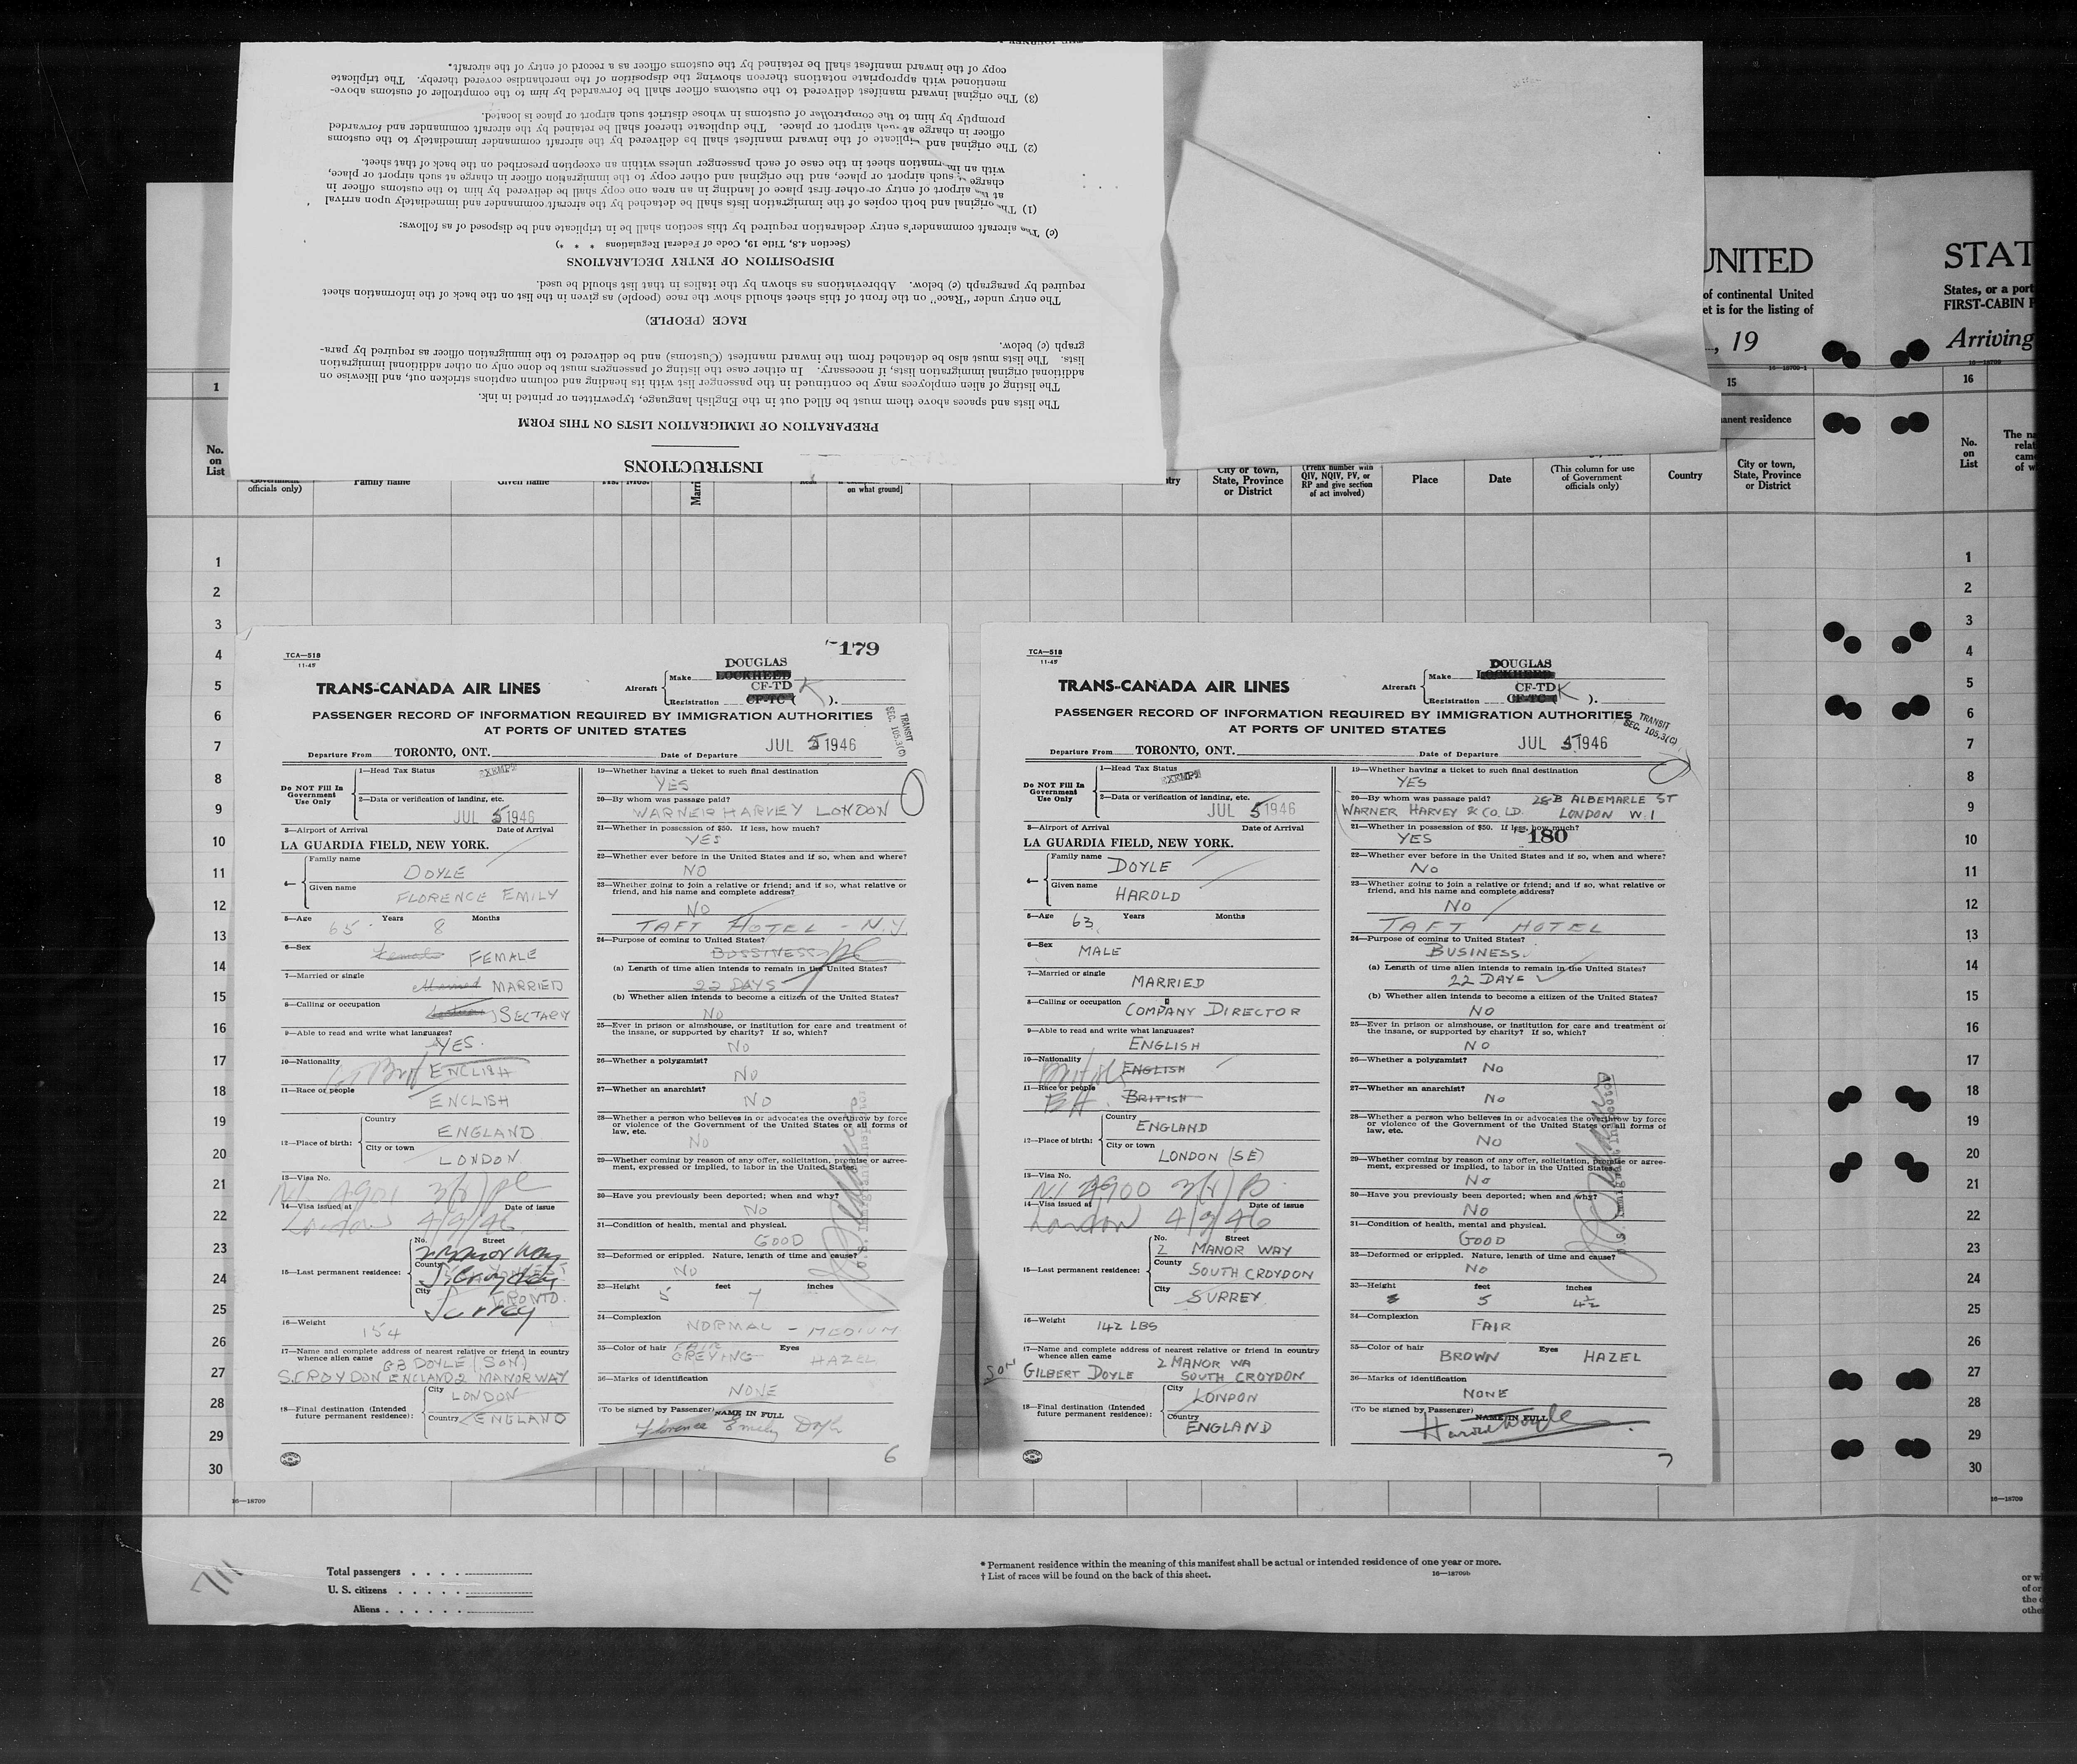 INSTRUCTIONS
PREPARATION OF IMMIGRATION LISTS ON THIS FORM
The lists and spaces above them must be filled out in the English language, typewritten or printed in ink.
The listing of alien employees may be continued in the passenger list with its heading and column captions stricken out, and likewise on
additional original immigration lists, if necessary. In either case the listing of passengers must be done only on other additional immigration
lists. The lists must also be detached from the inward manifest (Customs) and be delivered to the immigration officer as required by para-
graph (c) below.
RACE (PEOPLE)
The entry under "Race" on the front of this sheet should show the race (people) as given in the list on the back of the information sheet
required by paragraph (c) below. Abbreviations as shown by the italics in that list should be used.
DISPOSITION OF ENTRY DECLARATIONS
(Section 4.8, Title 19, Code of Federal Regulations * * *)
(c) The aircraft commander's entry declaration required by this section shall be in triplicate and be disposed of as follows:
(1) The original and both copies of the immigration lists shall be detached by the aircraft commander and immediately upon arrival
at the airport of entry or other first place of landing in an area one copy shall be delivered by him to the customs officer in
charge such airport or place, and the original and other copy to the immigration officer in charge at such airport or place,
with an information sheet in the case of each passenger unless within an exception prescribed on the back of that sheet.
(2) The original and duplicate of the inward manifest shall be delivered by the aircraft commander immediately to the customs
officer in charge at such airport or place. The duplicate thereof shall be retained by the aircraft commander and forwarded
promptly by him to the comptroller of customs in whose district such airport or place is located.
(3) The original inward manifest delivered to the customs officer shall be forwarded by him to the comptroller of customs above-
mentioned with appropriate notations thereon showing the disposition of the merchandise covered thereby. The triplicate
copy of the inward manifest shall be retained by the customs officer as a record of entry of the aircraft.
UNITED
STAT
of continental United
et is for the listing of
, 19
States, or a port
FIRST-CABIN P
Arriving
16—18709-1
16—18709
1
15
16
anent residence
No.
on
List
officials only)
Family name
Given name
Marri
on what ground]
City or town,
State, Province
or District
(Prefix number with
QIV, NQIV, PV, or
RP and give section
of act involved)
Place
Date
(This column for use
of Government
officials only)
Country
City or town,
State, Province
or District
No.
on
List
The na
relat
came
of w
1
2
3
4
5
6
7
8
9
10
11
12
13
14
15
16
17
18
19
20
21
22
23
24
25
26
27
28
29
30
179
TCA—518
11-45
TRANS-CANADA AIR LINES
Aircraft
Make DOUGLAS LOCKHEED
Registration CF-TD K CF-TC ( ).
PASSENGER RECORD OF INFORMATION REQUIRED BY IMMIGRATION AUTHORITIES
AT PORTS OF UNITED STATES
TRANSIT
SEC. 105.3(C)
Departure From TORONTO, ONT. Date of Departure JUL 5 1946
Do NOT Fill In
Government
Use Only
1—Head Tax Status EXEMPT
2—Data or verification of landing, etc.
JUL 5 1946
3—Airport of Arrival Date of Arrival
LA GUARDIA FIELD, NEW YORK.
4—
Family name DOYLE
Given name FLORENCE EMILY
5—Age 65 Years 8 Months
6—Sex Female FEMALE
7—Married or single Married MARRIED
8—Calling or occupation SECTARY
9—Able to read and write what languages?
YES.
10—Nationality ENGLISH
11—Race or people ENGLISH
12—Place of birth:
Country ENGLAND
City or town LONDON
13—Visa No.
14—Visa issued at Date of issue
London 4/9/46
15—Last permanent residence:
No. Street
2 Manor Way
County S. Croydon
City TORONTO
Surrey
16—Weight 154
17—Name and complete address of nearest relative or friend in country
whence alien came GB DOYLE (SON)
S. CROYDON ENGLAND 2 MANOR WAY
18—Final destination (Intended
future permanent residence):
City LONDON
Country ENGLAND
19—Whether having a ticket to such final destination
YES
20—By whom was passage paid?
WARNER HARVEY LONDON
21—Whether in possession of $50. If less, how much?
YES
22—Whether ever before in the United States and if so, when and where?
NO
23—Whether going to join a relative or friend; and if so, what relative or
friend, and his name and complete address?
NO
TAFT HOTEL - N.Y.
24—Purpose of coming to United States?
BUSSINESS
(a) Length of time alien intends to remain in the United States?
22 DAYS
(b) Whether alien intends to become a citizen of the United States?
No
25—Ever in prison or almshouse, or institution for care and treatment of
the insane, or supported by charity? If so, which?
No
26—Whether a polygamist?
No
27—Whether an anarchist?
NO
28—Whether a person who believes in or advocates the overthrow by force
or violence of the Government of the United States or all forms of
law, etc.
No
29—Whether coming by reason of any offer, solicitation, promise or agree-
ment, expressed or implied, to labor in the United States.
30—Have you previously been deported; when and why?
No
31—Condition of health, mental and physical.
GOOD
32—Deformed or crippled. Nature, length of time and cause?
No
33—Height 5 feet 7 inches
34—Complexion NORMAL - MEDIUM
35—Color of hair FAIR GREYING Eyes HAZEL
36—Marks of identification
NONE
(To be signed by Passenger) NAME IN FULL
Florence Emily Doyle
U.S. Immigrant Inspector
6
TCA—518
11-45
TRANS-CANADA AIR LINES
Aircraft
Make DOUGLAS LOCKHEED
Registration CF-TD K CF-TC ( ).
PASSENGER RECORD OF INFORMATION REQUIRED BY IMMIGRATION AUTHORITIES
AT PORTS OF UNITED STATES
TRANSIT
SEC. 105.3(C)
Departure From TORONTO, ONT. Date of Departure JUL 5 1946
Do NOT Fill In
Government
Use Only
1—Head Tax Status EXEMPT
2—Data or verification of landing, etc.
JUL 5 1946
3—Airport of Arrival Date of Arrival
LA GUARDIA FIELD, NEW YORK.
4—
Family name DOYLE
Given name HAROLD
5—Age 63 Years Months
6—Sex MALE
7—Married or single MARRIED
8—Calling or occupation COMPANY DIRECTOR
9—Able to read and write what languages?
ENGLISH
10—Nationality British ENGLISH
11—Race or people BRITISH
12—Place of birth:
Country ENGLAND
City or town LONDON (SE)
13—Visa No.
14—Visa issued at Date of issue
London 4/9/46
15—Last permanent residence:
No. Street
2 MANOR WAY
County SOUTH CROYDON
City SURREY
16—Weight 142 LBS
17—Name and complete address of nearest relative or friend in country
whence alien came 2 MANOR WA
SON GILBERT DOYLE SOUTH CROYDON
18—Final destination (Intended
future permanent residence):
City LONDON
Country ENGLAND
19—Whether having a ticket to such final destination
YES
20—By whom was passage paid? 28B ALBEMARLE ST
WARNER HARVEY & CO. LD. LONDON W.1
21—Whether in possession of $50. If less, how much?
YES 180
22—Whether ever before in the United States and if so, when and where?
No
23—Whether going to join a relative or friend; and if so, what relative or
friend, and his name and complete address?
NO
TAFT HOTEL
24—Purpose of coming to United States?
BUSINESS.
(a) Length of time alien intends to remain in the United States?
22 DAYS
(b) Whether alien intends to become a citizen of the United States?
NO
25—Ever in prison or almshouse, or institution for care and treatment of
the insane, or supported by charity? If so, which?
NO
26—Whether a polygamist?
No
27—Whether an anarchist?
No
28—Whether a person who believes in or advocates the overthrow by force
or violence of the Government of the United States or all forms of
law, etc.
No
29—Whether coming by reason of any offer, solicitation, promise or agree-
ment, expressed or implied, to labor in the United States.
No
30—Have you previously been deported; when and why?
No
31—Condition of health, mental and physical.
GOOD
32—Deformed or crippled. Nature, length of time and cause?
No
33—Height feet inches
5 4½
34—Complexion FAIR
35—Color of hair BROWN Eyes HAZEL
36—Marks of identification
NONE
(To be signed by Passenger) NAME IN FULL
Harold Doyle
U.S. Immigrant Inspector
7
1
2
3
4
5
6
7
8
9
10
11
12
13
14
15
16
17
18
19
20
21
22
23
24
25
26
27
28
29
30
16—18709
16—18709
Total passengers
U. S. citizens
Aliens
* Permanent residence within the meaning of this manifest shall be actual or intended residence of one year or more.
† List of races will be found on the back of this sheet.
16—18709b
or w
of or
the
othe